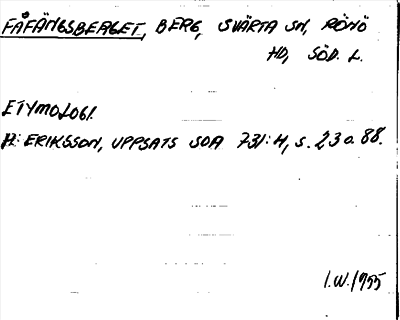 FÅFÄNGSBERGET, BERG, SVÄRTA SN, RÖNÖ
HD, SÖD. L.
ETYMOLOGI.
H: ERIKSSON, UPPSATS SOA 731:4, s. 23 o. 88.
I.W./1955